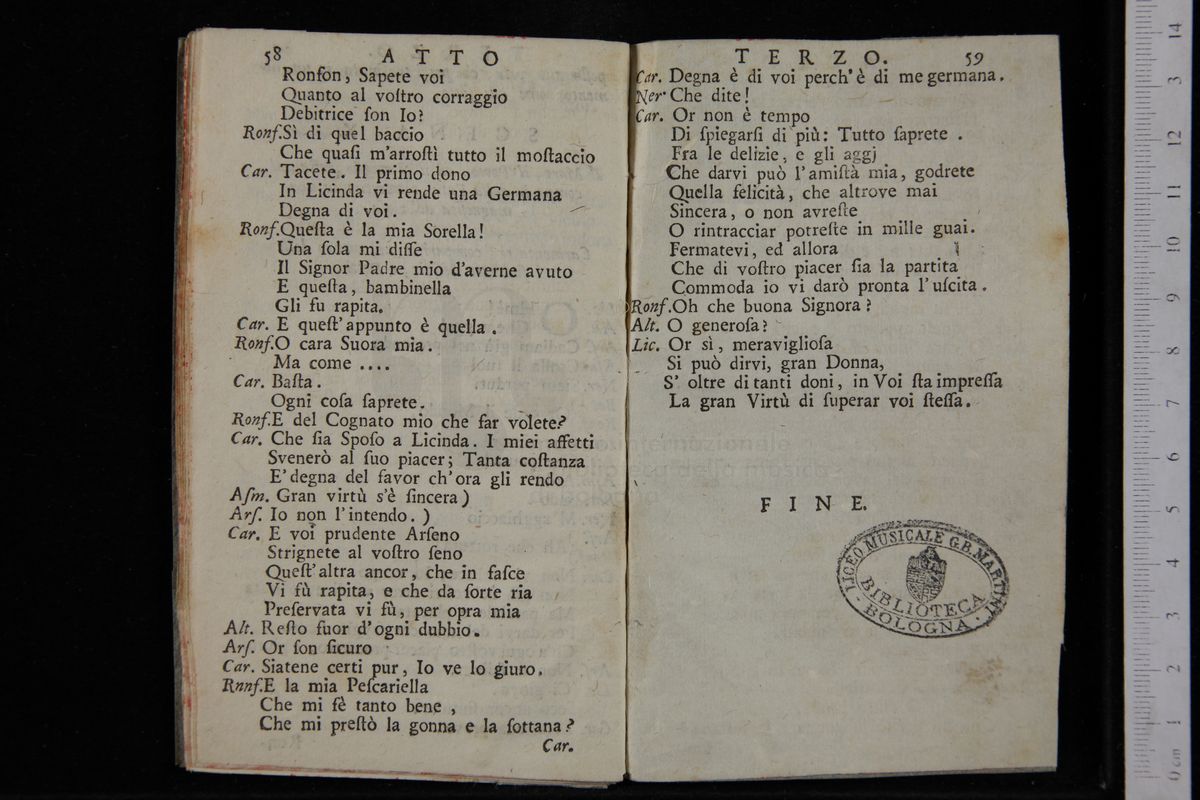 58 ATTO
Ronſon, Sapete voi
Quanto al voſtro corraggio
Debitrice ſon Io?
Ronſ. Sì di quel baccio
Che quaſi m'arroſtì tutto il moſtaccio
Car. Tacete. Il primo dono
In Licinda vi rende una Germana
Degna di voi.
Ronſ. Queſta è la mia Sorella!
Una ſola mi diſſe
Il Signor Padre mio d'averne avuto
E queſta, bambinella
Gli fu rapita.
Car. E queſt'appunto è quella.
Ronſ. O cara Suora mia.
Ma come ....
Car. Baſta.
Ogni coſa ſaprete.
Ronſ. E del Cognato mio che far volete?
Car. Che ſia Spoſo a Licinda. I miei affetti
Svenerò al ſuo piacer; Tanta coſtanza
E' degna del favor ch'ora gli rendo
Aſm. Gran virtù s'è ſincera)
Arſ. Io non l'intendo.)
Car. E voi prudente Arſeno
Strignete al voſtro ſeno
Queſt'altra ancor, che in faſce
Vi fù rapita, e che da ſorte ria
Preſervata vi fù, per opra mia
Alt. Reſto fuor d'ogni dubbio.
Arſ. Or ſon ſicuro
Car. Siatene certi pur, Io ve lo giuro.
Rnnſ. E la mia Peſcariella
Che mi fè tanto bene,
Che mi preſtò la gonna e la ſottana?
Car.
TERZO. 59
Car. Degna è di voi perch'è di me germana.
Ner. Che dite!
Car. Or non è tempo
Di ſpiegarſi di più: Tutto ſaprete.
Fra le delizie, e gli aggj
Che darvi può l'amiſtà mia, godrete
Quella felicità, che altrove mai
Sincera, o non avreſte
O rintracciar potreſte in mille guai.
Fermatevi, ed allora
Che di voſtro piacer ſia la partita
Commoda io vi darò pronta l'uſcita.
Ronſ. Oh che buona Signora?
Alt. O generoſa?
Lic. Or sì, meraviglioſa
Si può dirvi, gran Donna,
S' oltre di tanti doni, in Voi ſta impreſſa
La gran Virtù di ſuperar voi ſteſſa.
FINE.
LICEO MUSICALE G.B. MARTINI
BIBLIOTECA
BOLOGNA
0 cm 1 2 3 4 5 6 7 8 9 10 11 12 13 14